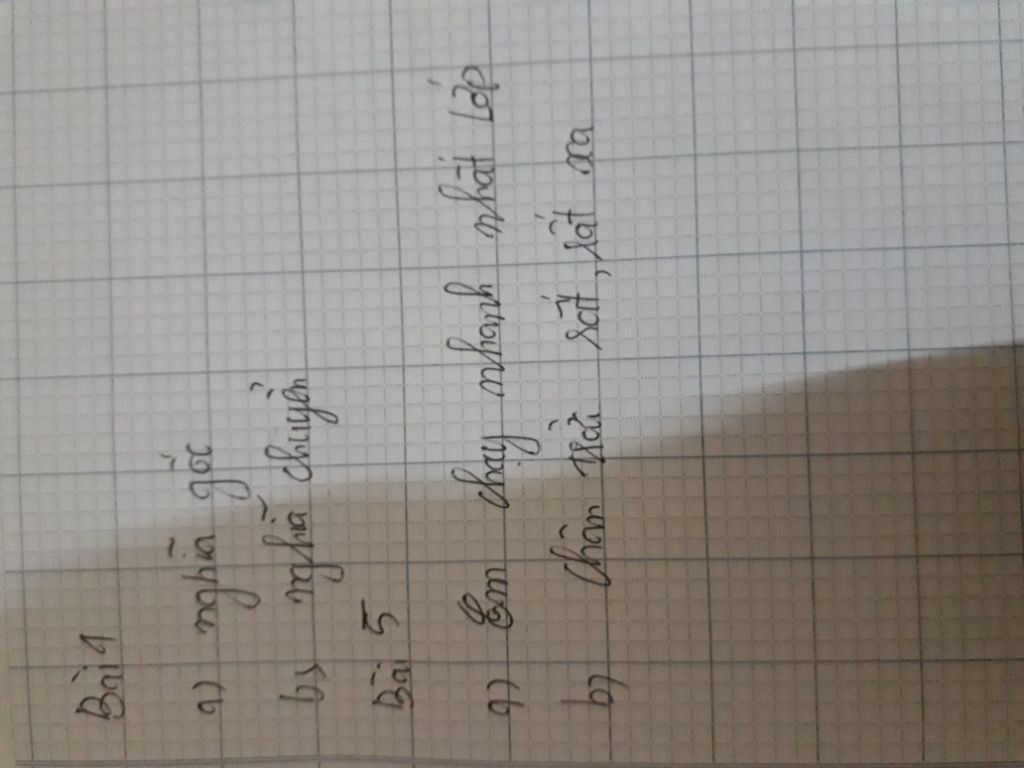 Bài 1
a) nghĩa gốc
b) nghiã chuyển
Bài 5
a) Em chạy nhanh nhất Lớp
b) Chân trời rất, rất xa